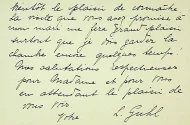 bientôt le plaisir de connaître
la visite que vous avez promise à
mon mari me fera grand plaisir
surtout que je dois garder la
chambre encore quelque temps!
Mes salutations respectueuses
pour Madame et pour vous
en attendant le plaisir de
vous voir
Votre L. Guhl